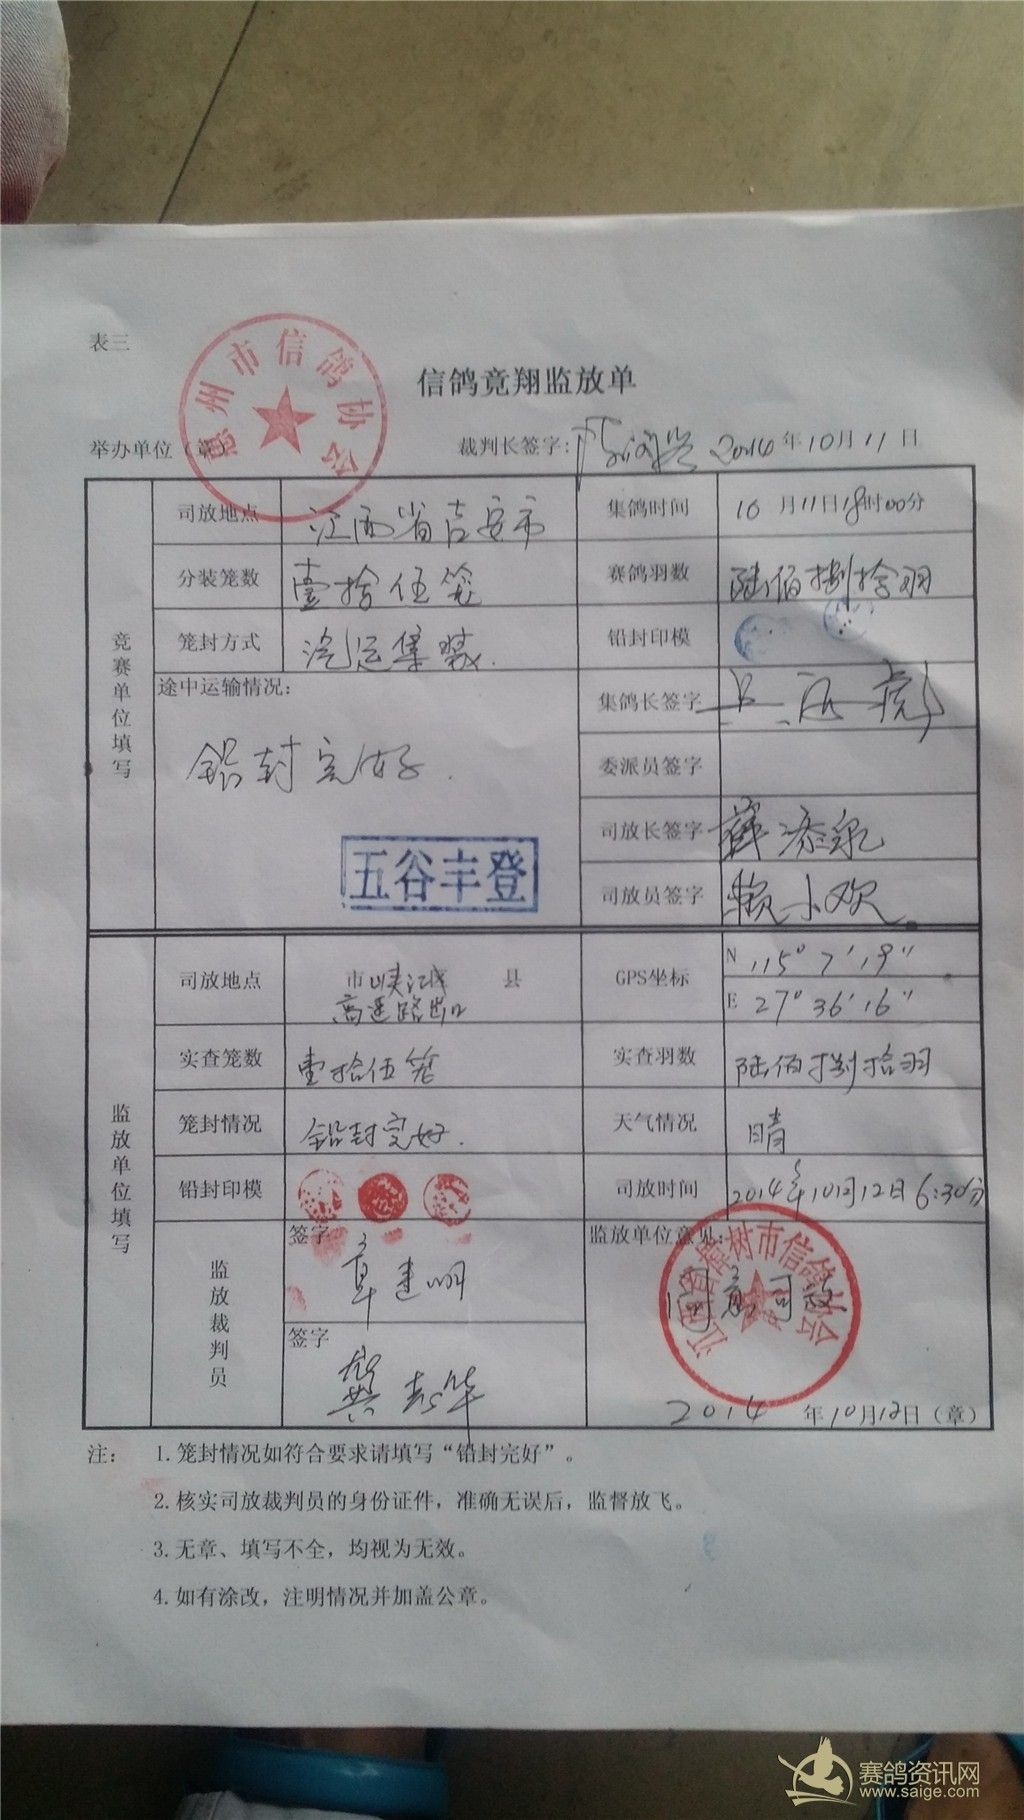 表三
信鸽竞翔监放单
州市信鸽协会
举办单位（章
裁判长签字:
2014年10月11日
竞赛单位填写
司放地点 江西省吉安市
集鸽时间 10月11日18时00分
分装笼数 壹拾伍笼
赛鸽羽数 陆佰捌拾羽
笼封方式 汽运集装.
铅封印模
途中运输情况:
铅封完好.
五谷丰登
集鸽长签字
委派员签字
司放长签字 薛添泉
司放员签字 赖小欢
监放单位填写
司放地点 市峡江 县
高速路出口
GPS坐标
N 115° 7′ 19″
E 27° 36′ 16″
实查笼数 壹拾伍笼
实查羽数 陆佰捌拾羽
笼封情况 铅封完好.
天气情况 晴
铅封印模
司放时间 2014年10月12日6:30分
监放裁判员
签字
签字
监放单位意见:
江西省樟树市信鸽协会
同意司放
2014年10月12日（章）
注: 1.笼封情况如符合要求请填写“铅封完好”。
2.核实司放裁判员的身份证件，准确无误后，监督放飞。
3.无章、填写不全，均视为无效。
4.如有涂改，注明情况并加盖公章。
赛鸽资讯网
www.saige.com